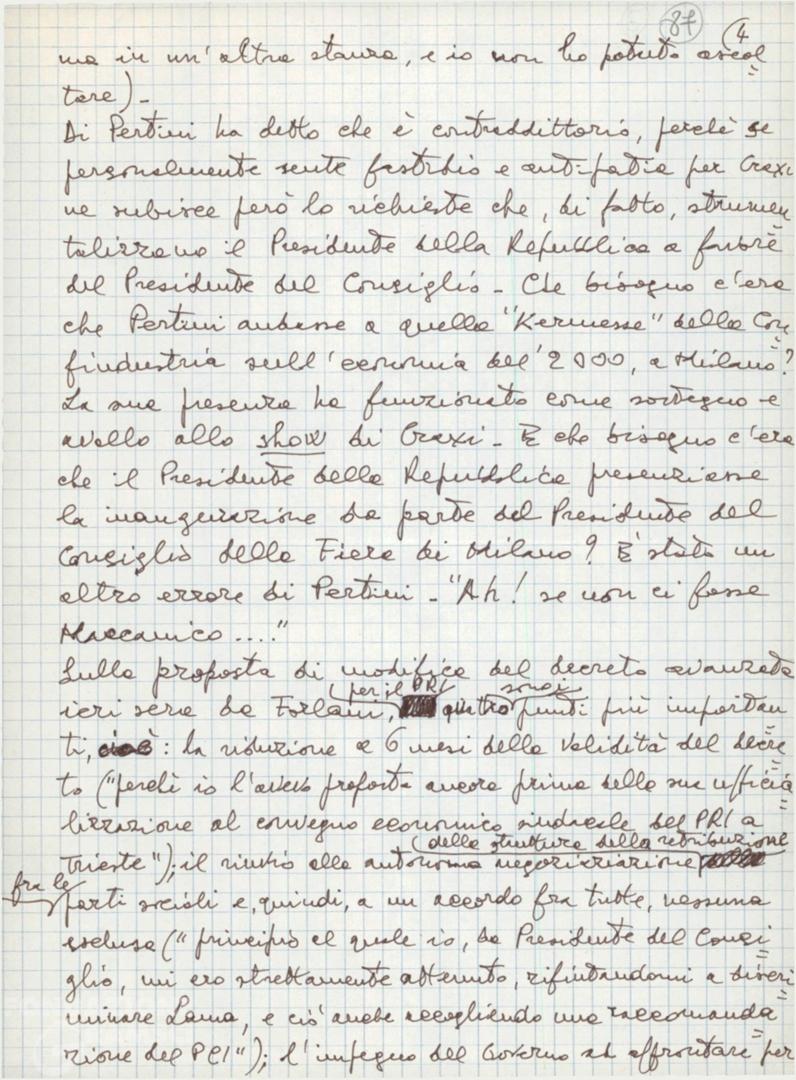 87
4
ma in un'altra stanza, e io non ho potuto ascol
tare)-
Di Pertini ha detto che è contraddittorio, perchè se
personalmente sente fastidio e antipatia per Craxi
ne subisce però le richieste che, di fatto, strumen
talizzano il Presidente della Repubblica a favore
del Presidente del Consiglio - Che bisogno c'era
che Pertini andasse a quella "Kermesse" della Con
findustria sull'economia del 2000, a Milano?
La sua presenza ha funzionato come sostegno e
avallo allo show di Craxi - E che bisogno c'era
che il Presidente della Repubblica presenziasse
la inaugurazione da parte del Presidente del
Consiglio della Fiera di Milano? E' stato un
altro errore di Pertini - "Ah! se non ci fosse
Maccanico ...."
Sulla proposta di modifica del decreto avanzata
ieri sera da Forlani, (per il PRI) quattro sono i punti più importan
ti, cioè: la riduzione a 6 mesi della validità del decre
to ("perchè io l'avevo proposta ancora prima della sua ufficia
lizzazione al convegno economico sindacale del PRI a
Trieste"); il rinvio alla autonoma negoziazione (della struttura della retribuzione
fra le parti sociali e, quindi, a un accordo fra tutte, nessuna
esclusa ("principio al quale io, da Presidente del Consi
glio, mi ero strettamente attenuto, rifiutandomi a discri
minare Lama, e ciò anche accogliendo una raccomanda
zione del PCI"); l'impegno del Governo ad affrontare per